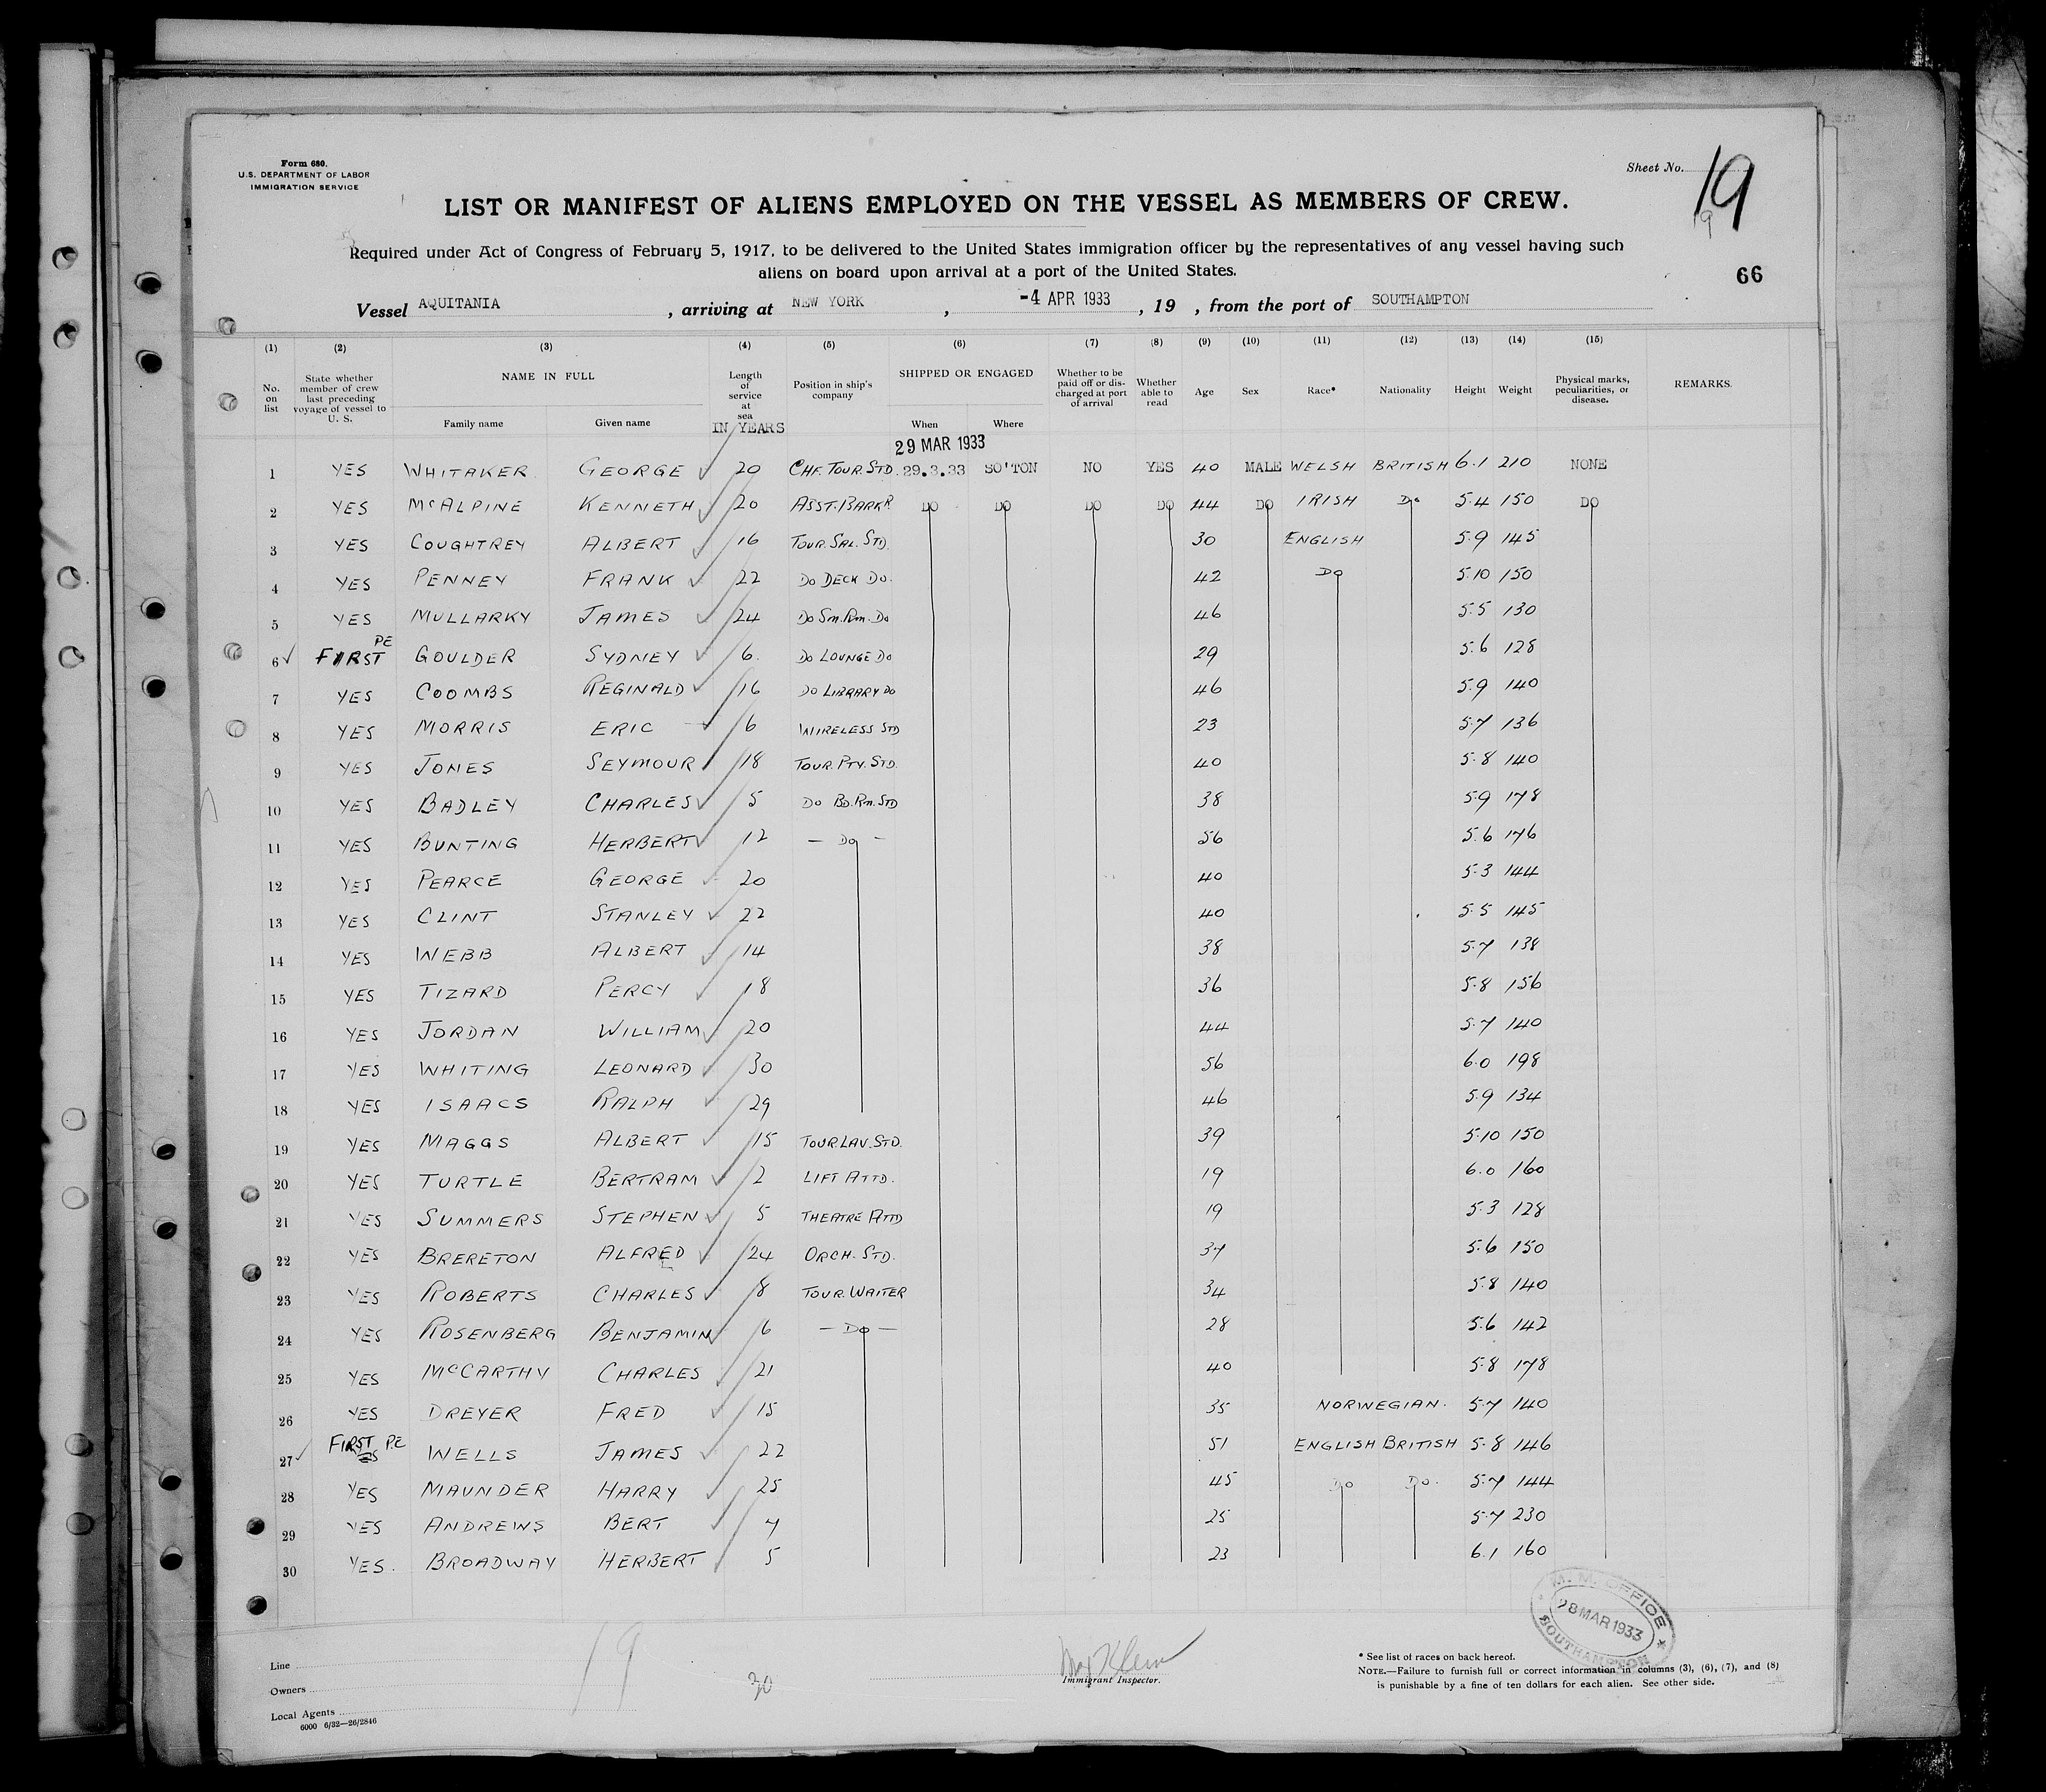 Form 680.
U.S. DEPARTMENT OF LABOR
IMMIGRATION SERVICE
Sheet No. 19
19
LIST OR MANIFEST OF ALIENS EMPLOYED ON THE VESSEL AS MEMBERS OF CREW.
Required under Act of Congress of February 5, 1917, to be delivered to the United States immigration officer by the representatives of any vessel having such
aliens on board upon arrival at a port of the United States.
66
Vessel AQUITANIA , arriving at NEW YORK , -4 APR 1933 , 19 , from the port of SOUTHAMPTON
(1) (2) (3) (4) (5) (6) (7) (8) (9) (10) (11) (12) (13) (14) (15)
No. on list State whether member of crew last preceding voyage of vessel to U. S. NAME IN FULL Family name Given name Length of service at sea IN YEARS Position in ship's company SHIPPED OR ENGAGED When Where Whether to be paid off or discharged at port of arrival Whether able to read Age Sex Race* Nationality Height Weight Physical marks, peculiarities, or disease. REMARKS.
29 MAR 1933
1 YES WHITAKER GEORGE 20 CHF. TOUR. STD. 29.3.33 SO'TON NO YES 40 MALE WELSH BRITISH 6.1 210 NONE
2 YES McALPINE KENNETH 20 ASST. BARKR. DO DO DO DO 44 DO IRISH Do 5.4 150 DO
3 YES COUGHTREY ALBERT 16 TOUR. SAL. STD. 30 ENGLISH 5.9 145
4 YES PENNEY FRANK 22 DO DECK DO. 42 DO 5.10 150
5 YES MULLARKY JAMES 24 DO SM. RM. DO 46 5.5 130
6 FIRST PE GOULDER SYDNEY 6. DO LOUNGE DO 29 5.6 128
7 YES COOMBS REGINALD 16 DO LIBRARY DO 46 5.9 140
8 YES MORRIS ERIC 6 WIRELESS STD 23 5.7 136
9 YES JONES SEYMOUR 18 TOUR. PTY. STD. 40 5.8 140
10 YES BADLEY CHARLES 5 DO BD. RM. STD 38 5.9 178
11 YES BUNTING HERBERT 12 - DO - 56 5.6 176
12 YES PEARCE GEORGE 20 40 5.3 144
13 YES CLINT STANLEY 22 40 5.5 145
14 YES WEBB ALBERT 14 38 5.7 138
15 YES TIZARD PERCY 18 36 5.8 156
16 YES JORDAN WILLIAM 20 44 5.7 140
17 YES WHITING LEONARD 30 56 6.0 198
18 YES ISAACS RALPH 29 46 5.9 134
19 YES MAGGS ALBERT 15 TOUR. LAV. STD. 39 5.10 150
20 YES TURTLE BERTRAM 2 LIFT ATTD. 19 6.0 160
21 YES SUMMERS STEPHEN 5 THEATRE ATTD 19 5.3 128
22 YES BRERETON ALFRED 24 ORCH. STD. 37 5.6 150
23 YES ROBERTS CHARLES 8 TOUR. WAITER 34 5.8 140
24 YES ROSENBERG BENJAMIN 6 - DO - 28 5.6 142
25 YES McCARTHY CHARLES 21 40 5.8 178
26 YES DREYER FRED 15 35 NORWEGIAN. 5.7 140
27 FIRST P.E WELLS JAMES 22 51 ENGLISH BRITISH 5.8 146
28 YES MAUNDER HARRY 25 45 DO DO. 5.7 144
29 YES ANDREWS BERT 7 25 5.7 230
30 YES. BROADWAY HERBERT 5 23 6.1 160
M. M. OFFICE
28 MAR 1933
SOUTHAMPTON
Line
Owners
Local Agents
6000 6/32—26/2846
19
30
Immigrant Inspector.
* See list of races on back hereof.
NOTE.—Failure to furnish full or correct information in columns (3), (6), (7), and (8)
is punishable by a fine of ten dollars for each alien. See other side.